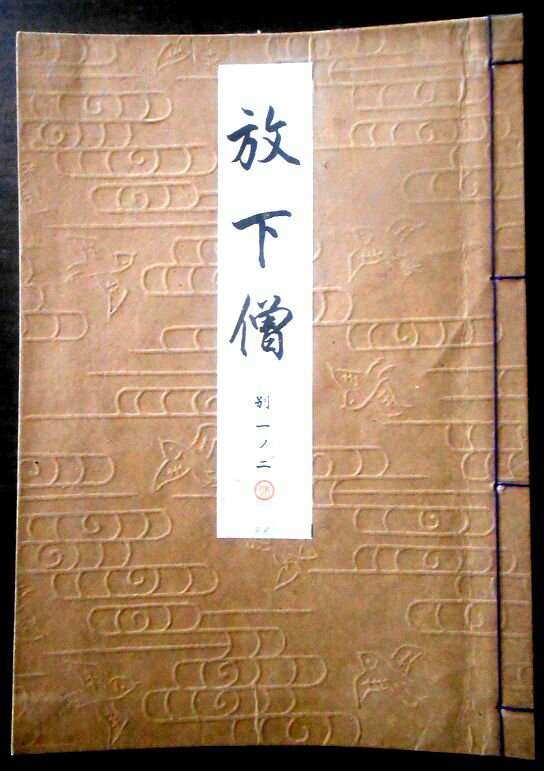 放下僧
別一ノ二